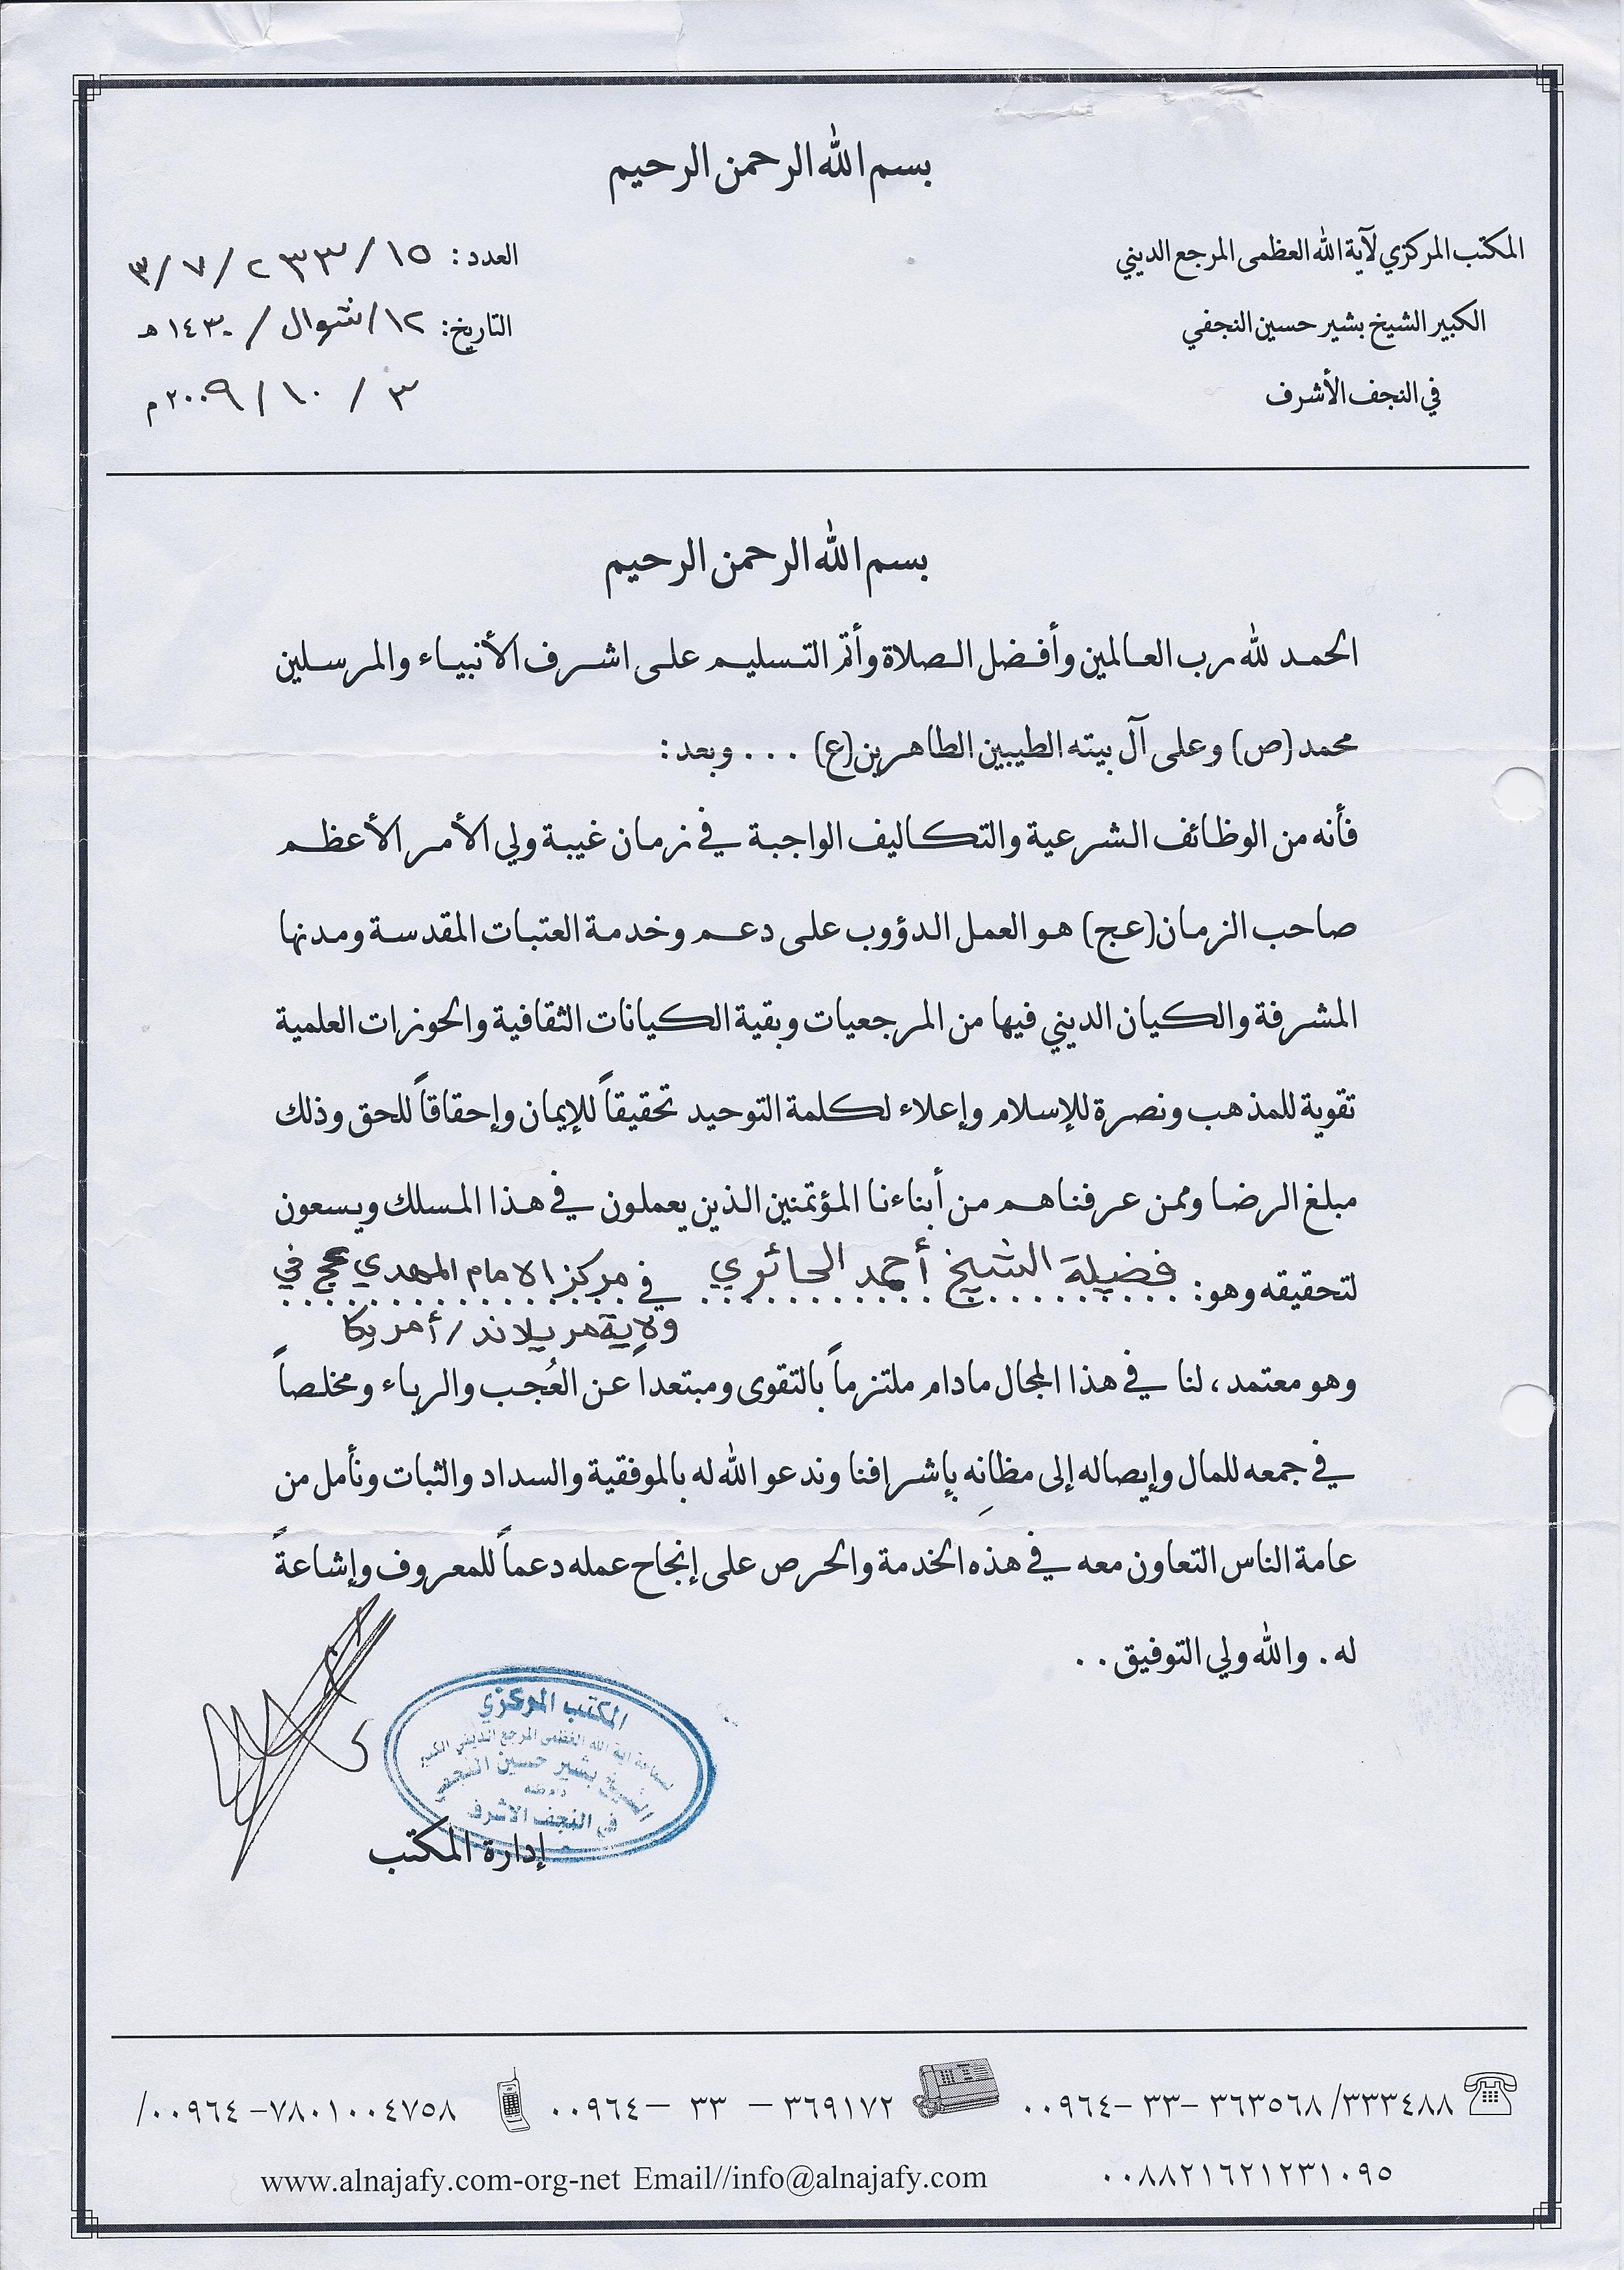 بسم الله الرحمن الرحيم
المكتب المركزي لآية الله العظمى المرجع الديني
الكبير الشيخ بشير حسين النجفي
في النجف الأشرف
العدد: ١٥/ ٢٣٣/ ٧/ ٣
التاريخ: ١٢/ شوال/ ١٤٣٠ هـ
٣ / ١٠ / ٢٠٠٩ م
بسم الله الرحمن الرحيم
الحمد لله رب العالمين وأفضل الصلاة وأتم التسليم على اشرف الأنبياء والمرسلين
محمد (ص) وعلى آل بيته الطيبين الطاهرين (ع) ... وبعد:
فأنه من الوظائف الشرعية والتكاليف الواجبة في زمان غيبة ولي الأمر الأعظم
صاحب الزمان (عج) هو العمل الدؤوب على دعم وخدمة العتبات المقدسة ومدنها
المشرفة والكيان الديني فيها من المرجعيات وبقية الكيانات الثقافية والحوزات العلمية
تقوية للمذهب ونصرة للإسلام وإعلاء لكلمة التوحيد تحقيقاً للإيمان وإحقاقاً للحق وذلك
مبلغ الرضا وممن عرفناهم من أبناءنا المؤتمنين الذين يعملون في هذا المسلك ويسعون
لتحقيقه وهو: فضيلة الشيخ أحمد الحائري في مركز الامام المهدي عج في
ولاية مريلاند/ أمريكا
وهو معتمد، لنا في هذا المجال مادام ملتزماً بالتقوى ومبتعداً عن العُجب والرياء ومخلصاً
في جمعه للمال وإيصاله إلى مظانِه بإشرافنا وندعو الله له بالموفقية والسداد والثبات ونأمل من
عامة الناس التعاون معه في هذه الخدمة والحرص على إنجاح عمله دعماً للمعروف وإشاعةً
له. والله ولي التوفيق..
المكتب المركزي
لسماحة اية الله العظمى المرجع الديني الكبير
الشيخ بشير حسين النجفي
دام ظله
في النجف الاشرف
إدارة المكتب
٠٠٩٦٤– ٣٣– ٣٦٣٥٦٨ /٣٣٣٤٨٨
٠٠٩٦٤– ٣٣ – ٣٦٩١٧٢
٠٠٩٦٤ –٧٨٠١٠٠٤٧٥٨/
٠٠٨٨٢١٦٢١٢٣١٠٩٥
www.alnajafy.com-org-net Email//info@alnajafy.com